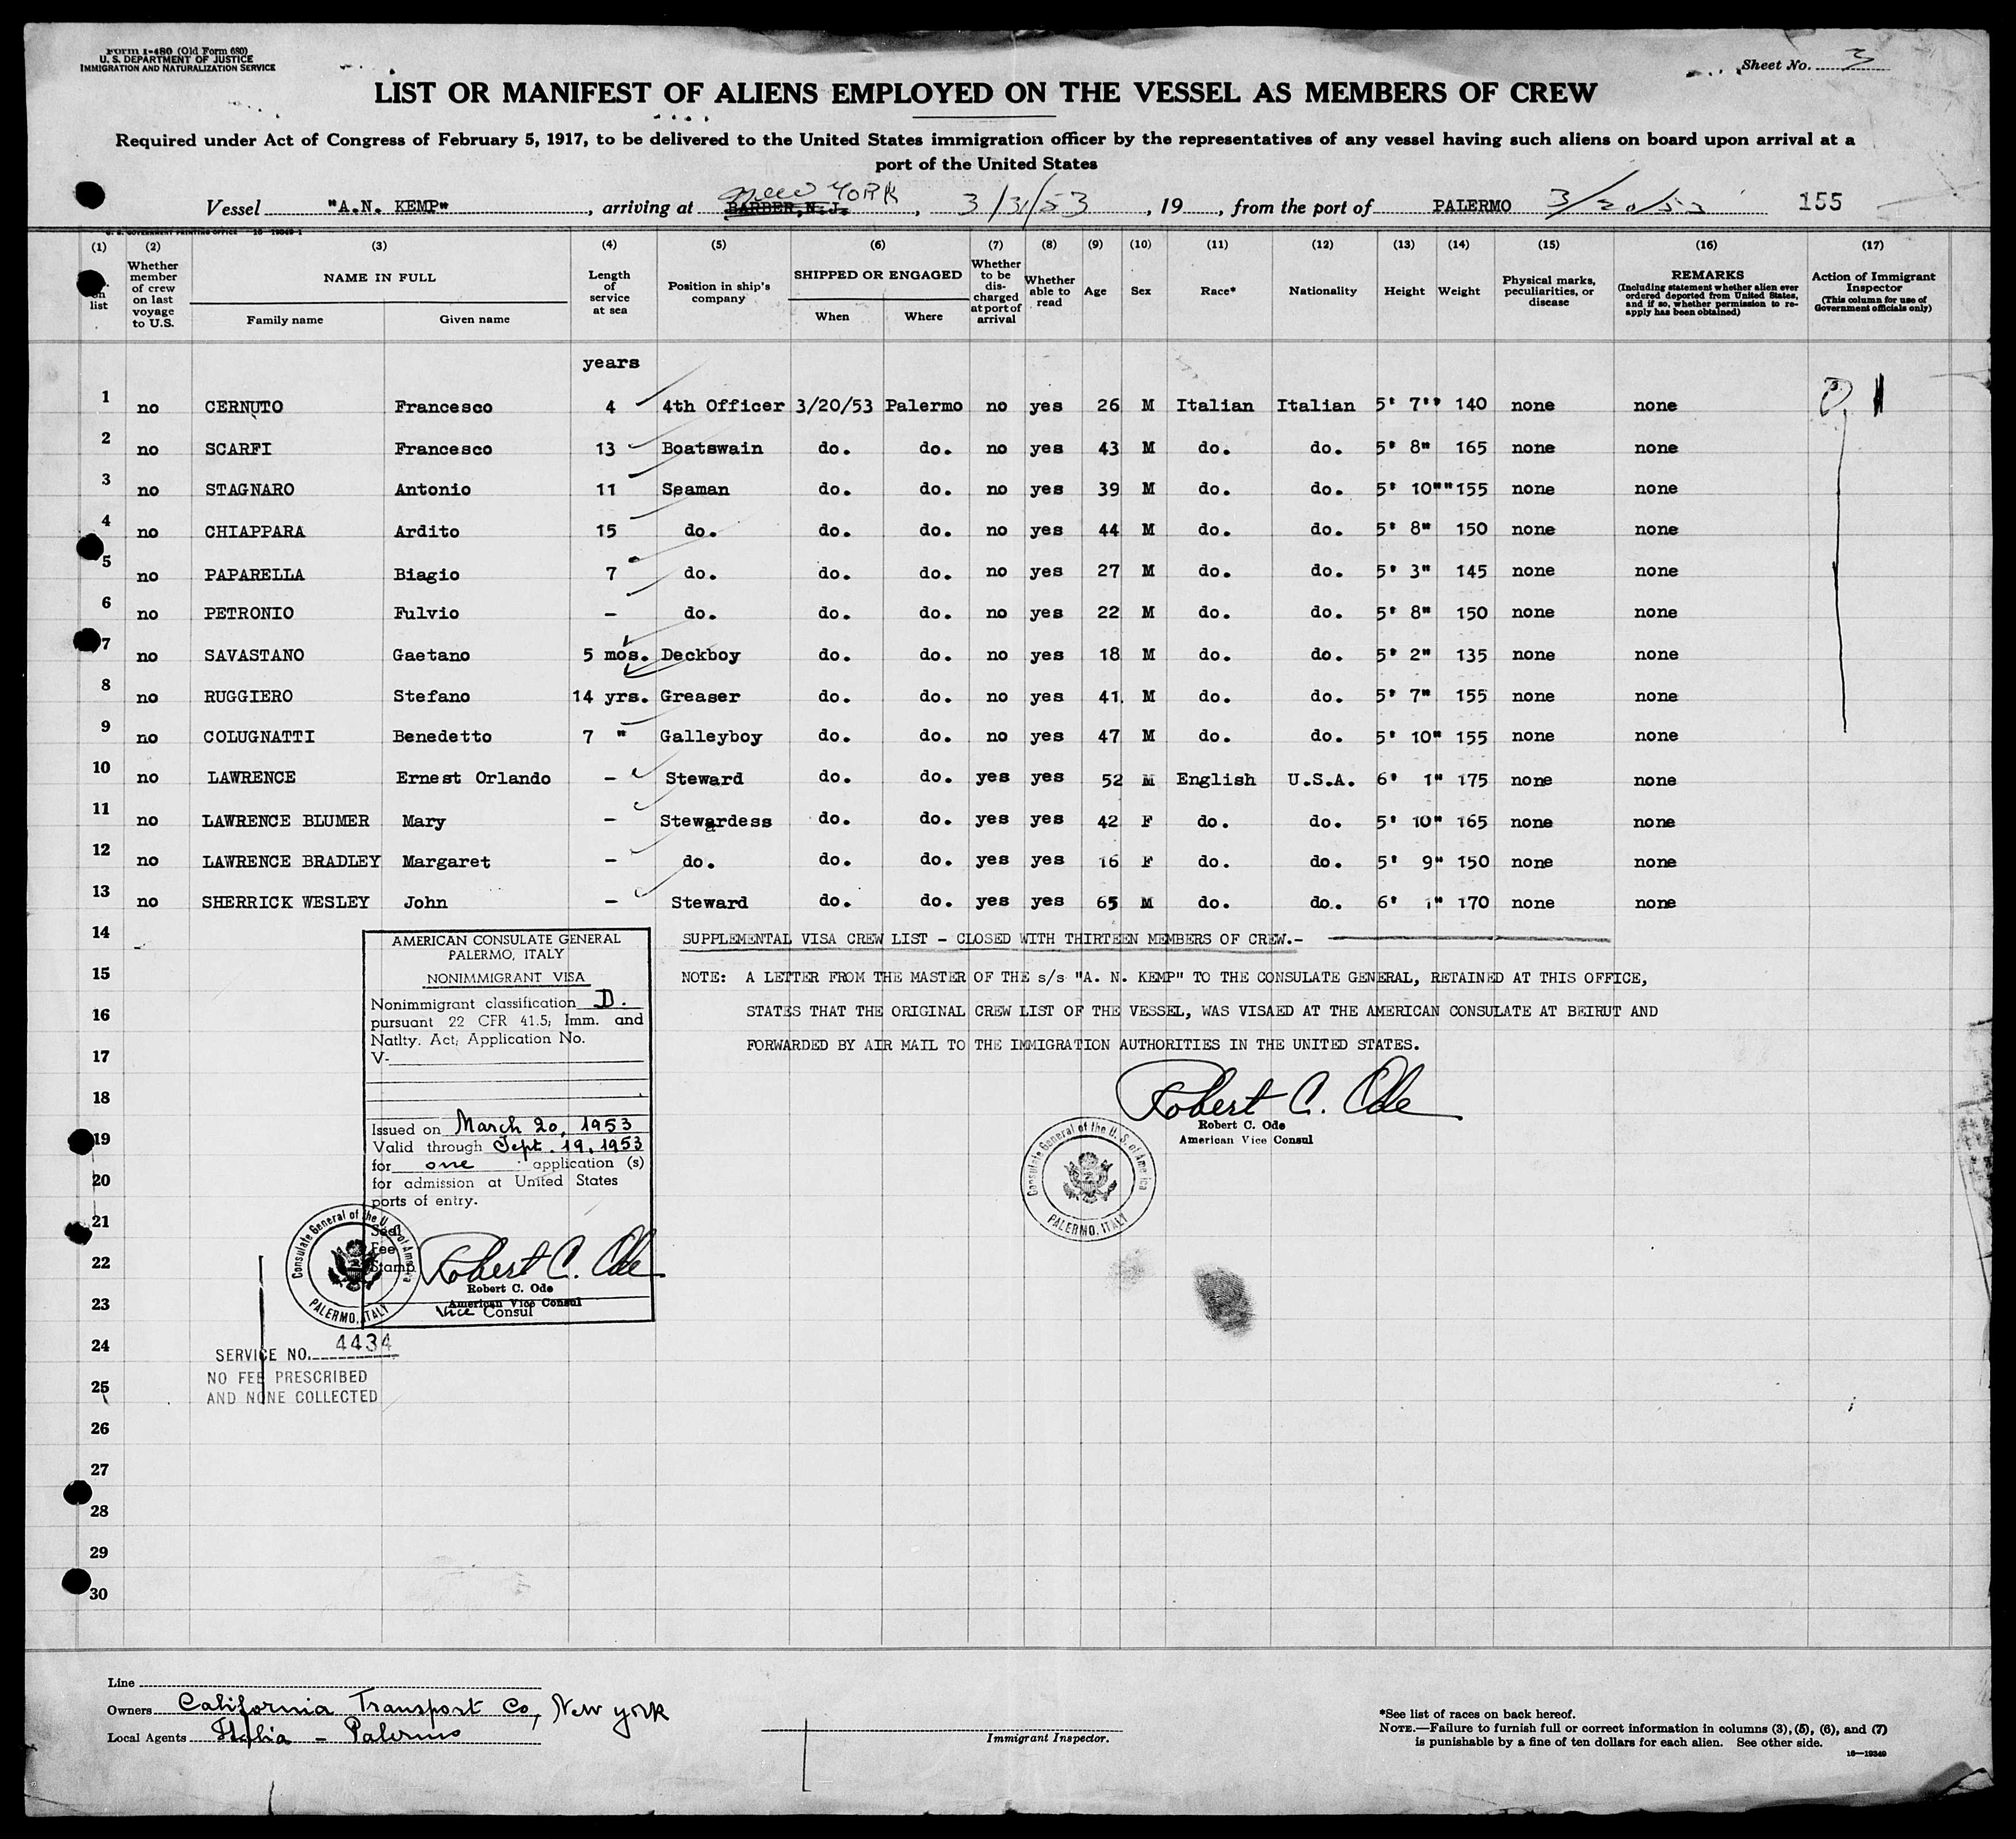 Form I-480 (Old Form 680)
U. S. DEPARTMENT OF JUSTICE
IMMIGRATION AND NATURALIZATION SERVICE
Sheet No. 3
LIST OR MANIFEST OF ALIENS EMPLOYED ON THE VESSEL AS MEMBERS OF CREW
Required under Act of Congress of February 5, 1917, to be delivered to the United States immigration officer by the representatives of any vessel having such aliens on board upon arrival at a
port of the United States
Vessel "A.N. KEMP", arriving at BARBER, N.J. New YORK, 3/31/53, 19, from the port of PALERMO 3/20/53 155
U. S. GOVERNMENT PRINTING OFFICE 16-19349-1
(1) (2) (3) (4) (5) (6) (7) (8) (9) (10) (11) (12) (13) (14) (15) (16) (17)
on list
Whether member of crew on last voyage to U.S.
NAME IN FULL
Family name Given name
Length of service at sea
Position in ship's company
SHIPPED OR ENGAGED
When Where
Whether to be discharged at port of arrival
Whether able to read
Age Sex Race* Nationality Height Weight
Physical marks, peculiarities, or disease
REMARKS
(Including statement whether alien ever ordered deported from United States, and if so, whether permission to reapply has been obtained)
Action of Immigrant Inspector
(This column for use of Government officials only)
years
1 no CERNUTO Francesco 4 4th Officer 3/20/53 Palermo no yes 26 M Italian Italian 5' 7" 140 none none
2 no SCARFI Francesco 13 Boatswain do. do. no yes 43 M do. do. 5' 8" 165 none none
3 no STAGNARO Antonio 11 Seaman do. do. no yes 39 M do. do. 5' 10"" 155 none none
4 no CHIAPPARA Ardito 15 do. do. do. no yes 44 M do. do. 5' 8" 150 none none
5 no PAPARELLA Biagio 7 do. do. do. no yes 27 M do. do. 5' 3" 145 none none
6 no PETRONIO Fulvio - do. do. do. no yes 22 M do. do. 5' 8" 150 none none
7 no SAVASTANO Gaetano 5 mos. Deckboy do. do. no yes 18 M do. do. 5' 2" 135 none none
8 no RUGGIERO Stefano 14 yrs. Greaser do. do. no yes 41. M do. do. 5' 7" 155 none none
9 no COLUGNATTI Benedetto 7 " Galleyboy do. do. no yes 47 M do. do. 5' 10" 155 none none
10 no LAWRENCE Ernest Orlando - Steward do. do. yes yes 52 M English U.S.A. 6' 1" 175 none none
11 no LAWRENCE BLUMER Mary - Stewardess do. do. yes yes 42 F do. do. 5' 10" 165 none none
12 no LAWRENCE BRADLEY Margaret - do. do. do. yes yes 16 F do. do. 5' 9" 150 none none
13 no SHERRICK WESLEY John - Steward do. do. yes yes 65 M do. do.. 6' 1" 170 none none
14
15
16
17
18
19
20
21
22
23
24
25
26
27
28
29
30
SUPPLEMENTAL VISA CREW LIST - CLOSED WITH THIRTEEN MEMBERS OF CREW.-
NOTE: A LETTER FROM THE MASTER OF THE s/s "A. N. KEMP" TO THE CONSULATE GENERAL, RETAINED AT THIS OFFICE,
STATES THAT THE ORIGINAL CREW LIST OF THE VESSEL, WAS VISAED AT THE AMERICAN CONSULATE AT BEIRUT AND
FORWARDED BY AIR MAIL TO THE IMMIGRATION AUTHORITIES IN THE UNITED STATES.
Robert C. Ode
Robert C. Ode
American Vice Consul
Consulate General of the U. S. of America
PALERMO, ITALY
AMERICAN CONSULATE GENERAL
PALERMO, ITALY
NONIMMIGRANT VISA
Nonimmigrant classification D.
pursuant 22 CFR 41.5; Imm. and
Natlty. Act; Application No.
V-
Issued on March 20, 1953
Valid through Sept. 19, 1953
for one application (s)
for admission at United States
ports of entry.
Seal
Fee
Stamp
Consulate General of the U. S. of America
PALERMO, ITALY
Robert C. Ode
Robert C. Ode
American Vice Consul
Vice Consul
SERVICE NO. 4434
NO FEE PRESCRIBED
AND NONE COLLECTED
Line
Owners California Transport Co, New York
Local Agents Italia - Palermo
Immigrant Inspector.
*See list of races on back hereof.
NOTE.—Failure to furnish full or correct information in columns (3), (5), (6), and (7)
is punishable by a fine of ten dollars for each alien. See other side.
16—19349